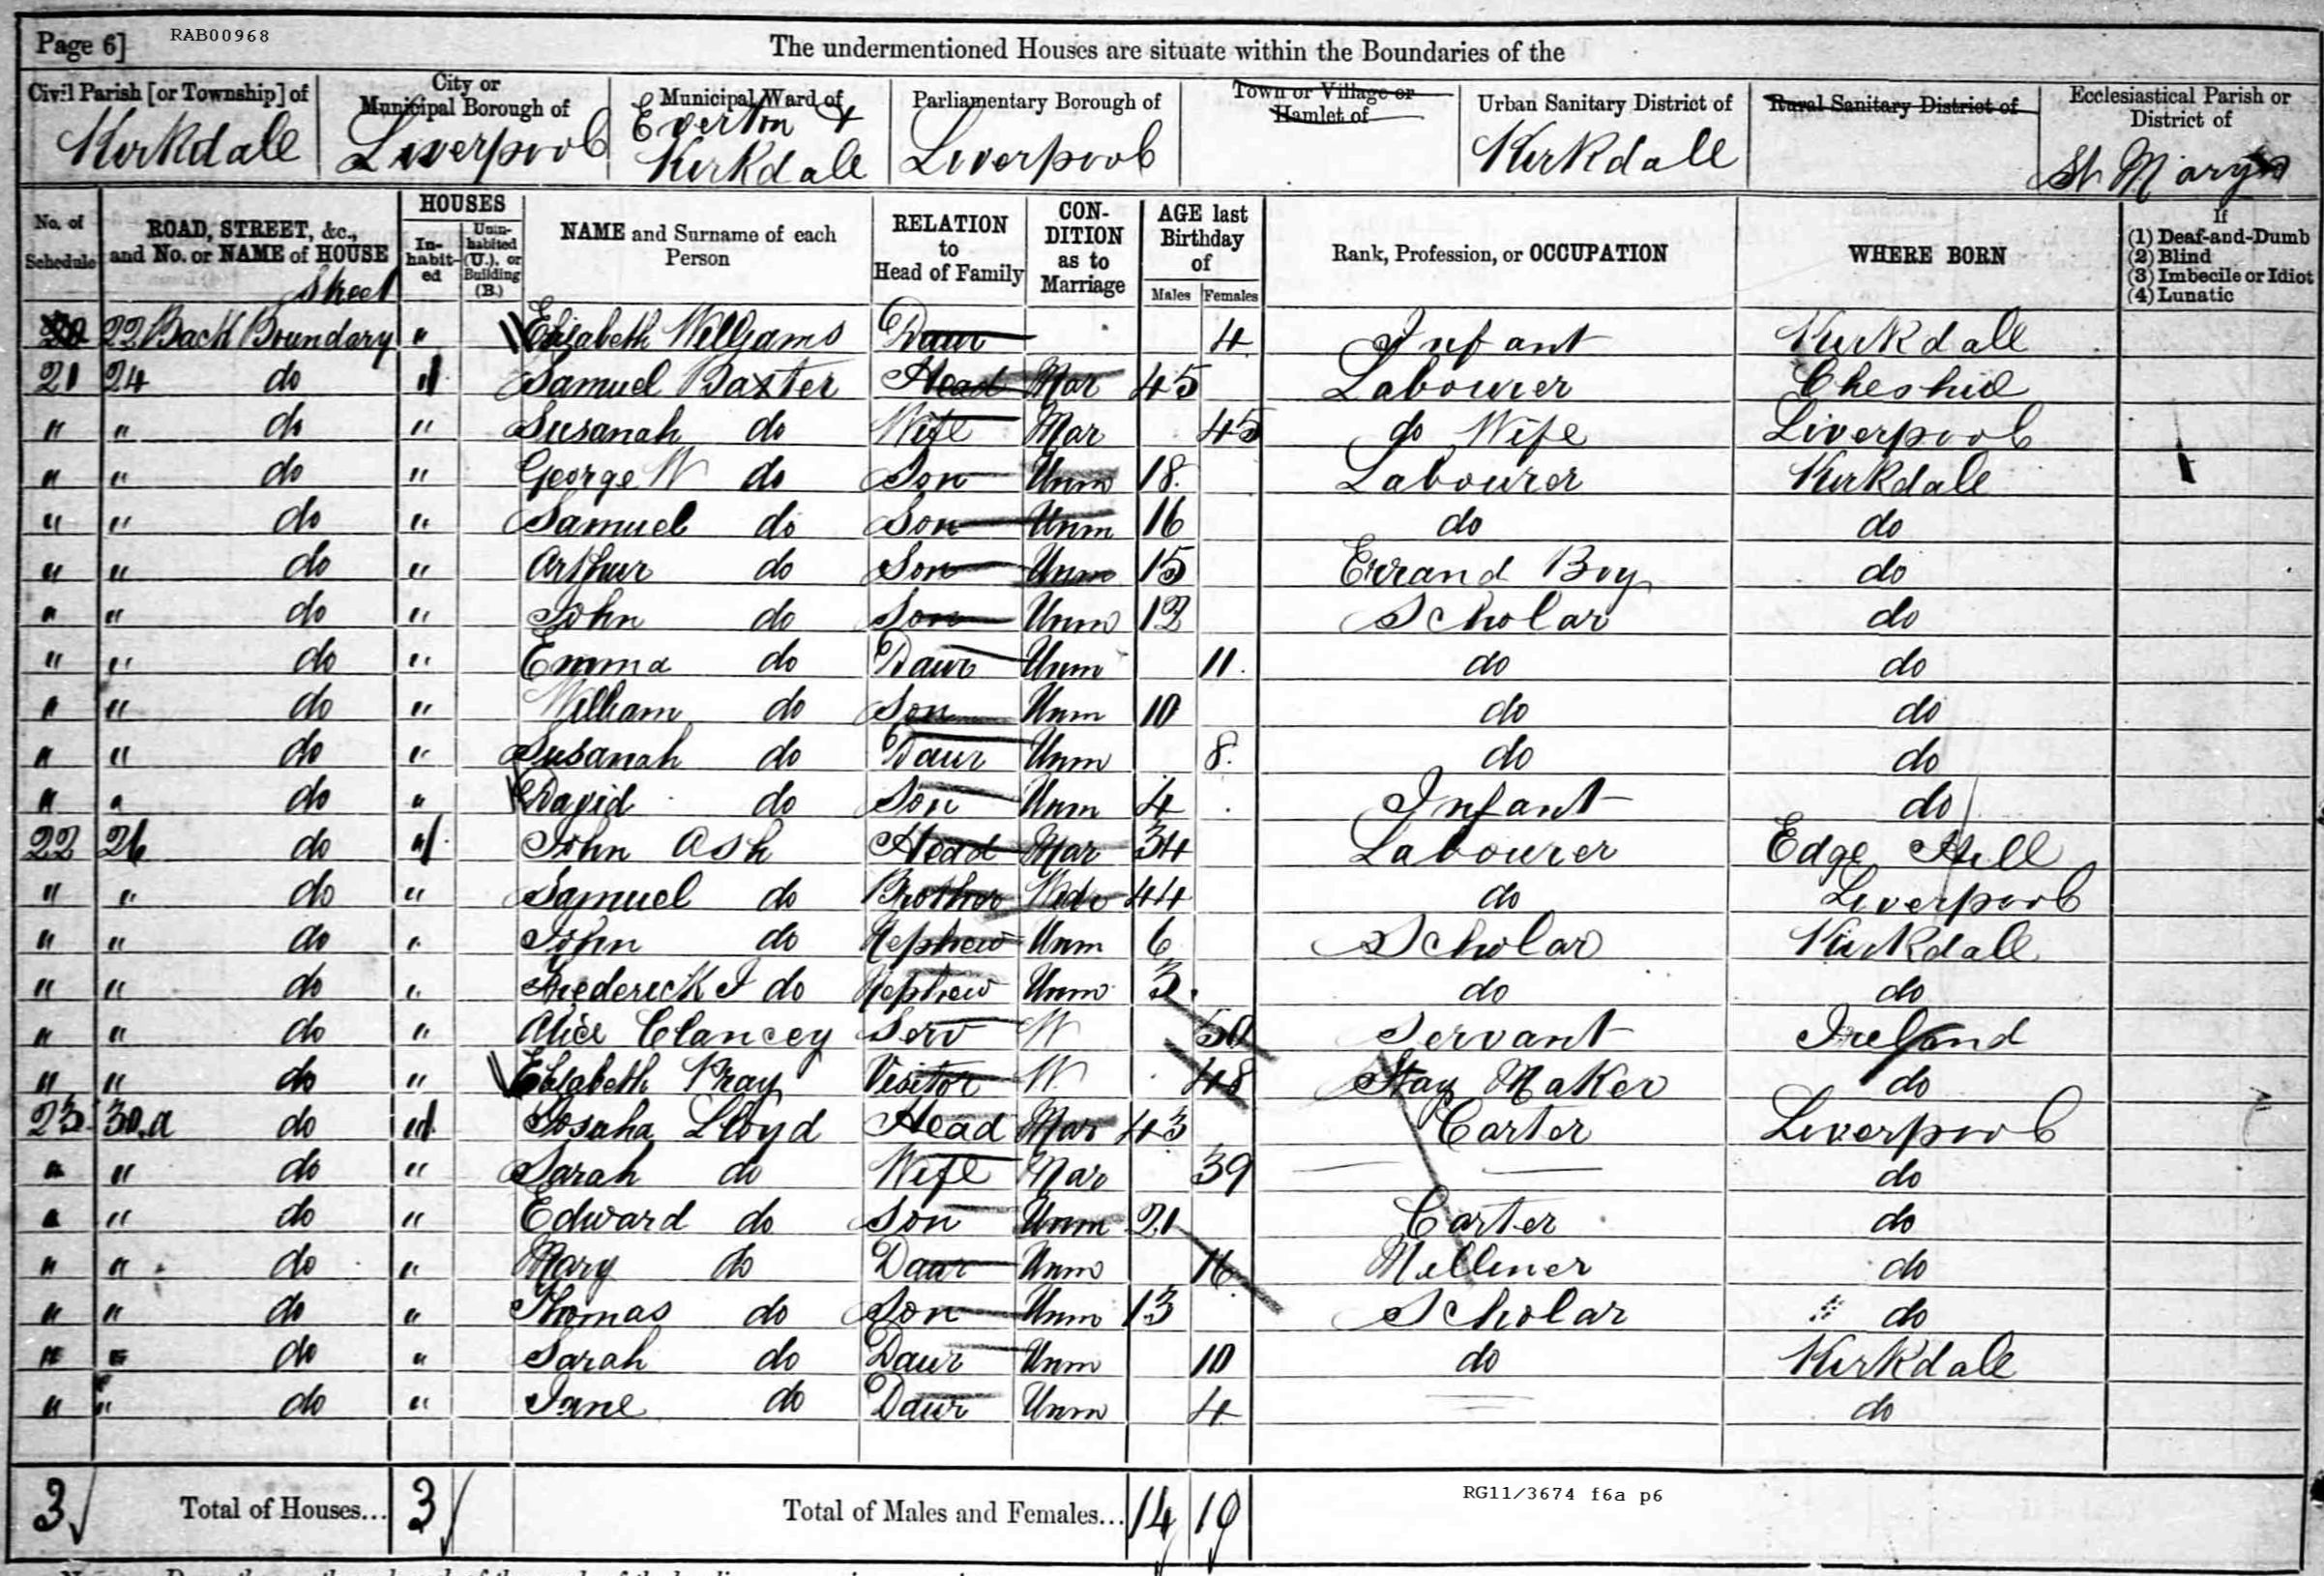 Page 6] RAB00968
The undermentioned Houses are situate within the Boundaries of the
Civil Parish [or Township] of Kirkdale
City or Municipal Borough of Liverpool
Municipal Ward of Everton + Kirkdale
Parliamentary Borough of Liverpool
Town or Village or Hamlet of
Urban Sanitary District of Kirkdale
Rural Sanitary District of
Ecclesiastical Parish or District of St Marys
No. of Schedule
ROAD, STREET, &c., and No. or NAME of HOUSE
HOUSES
In-habit-ed
Unin-habited (U.), or Building (B.)
NAME and Surname of each Person
RELATION to Head of Family
CON-DITION as to Marriage
AGE last Birthday of
Males Females
Rank, Profession, or OCCUPATION
WHERE BORN
If
(1) Deaf-and-Dumb
(2) Blind
(3) Imbecile or Idiot
(4) Lunatic
Street
20 22 Back Boundary " Elizabeth Williams Daur 4 Infant Kirkdale
21 24 do 1 Samuel Baxter Head Mar 45 Labourer Cheshire
" " do " Susanah do Wife Mar 45 do Wife Liverpool
" " do " George W do Son Unm 18 Labourer Kirkdale
" " do " Samuel do Son Unm 16 do do
" " do " Arthur do Son Unm 15 Errand Boy do
" " do " John do Son Unm 12 Scholar do
" " do " Emma do Daur Unm 11 do do
" " do " William do Son Unm 10 do do
" " do " Susanah do Daur Unm 8 do do
" " do " David do Son Unm 4 Infant do
22 26 do 1 John Ash Head Mar 34 Labourer Edge Hill
" " do " Samuel do Brother Widr 44 do Liverpool
" " do " John do Nephew Unm 6 Scholar Kirkdale
" " do " Frederick J do Nephew Unm 3 do do
" " do " Alice Clancey Serv W 50 Servant Ireland
" " do " Elizabeth Pray Visitor W 48 Stay Maker do
23 30.a do 1 Josuha Lloyd Head Mar 43 Carter Liverpool
" " do " Sarah do Wife Mar 39 — — do
" " do " Edward do Son Unm 21 Carter do
" " do " Mary do Daur Unm 16 Milliner do
" " do " Thomas do Son Unm 13 Scholar do
" " do " Sarah do Daur Unm 10 do Kirkdale
" " do " Jane do Daur Unm 4 do
3 Total of Houses... 3 Total of Males and Females... 14 10
RG11/3674 f6a p6